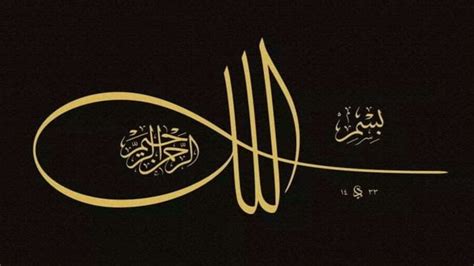 بِسْمِ
الله
الرَّحْمٰنِ الرَّحِيْمِ
١٤ ٣٣